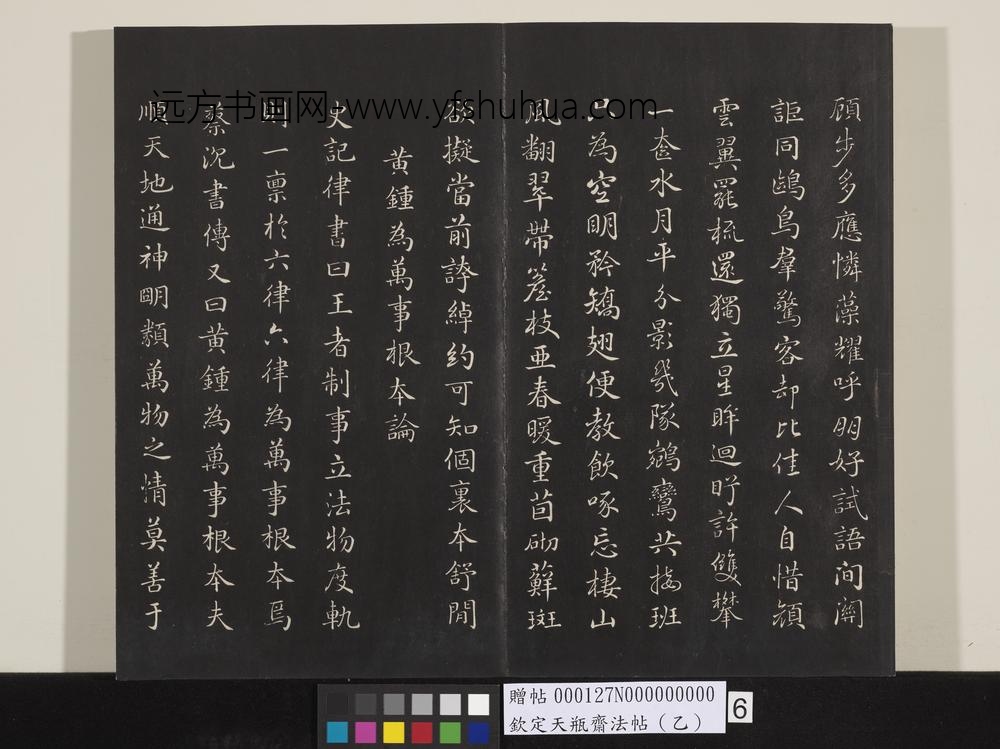 顧步多應憐藻耀呼朋好試語間關
詎同鷗鳥羣驚客却比佳人自惜顏
雲翼罷梳還獨立星眸迴盱許雙攀
一奩水月平分影幾隊鵷鸞共接班
只為空明矜矯翅便教飲啄忘棲山
風翻翠帶簷枝亞春暖重茵砌蘚斑
欲擬當前誇綽約可知個裏本舒閒
黃鍾為萬事根本論
史記律書曰王者制事立法物度軌
則一稟於六律六律為萬事根本焉
蔡沈書傳又曰黃鍾為萬事根本夫
順天地通神明類萬物之情莫善于
远方书画网:www.yfshuhua.com
贈帖 000127N000000000
欽定天瓶齋法帖(乙)
6